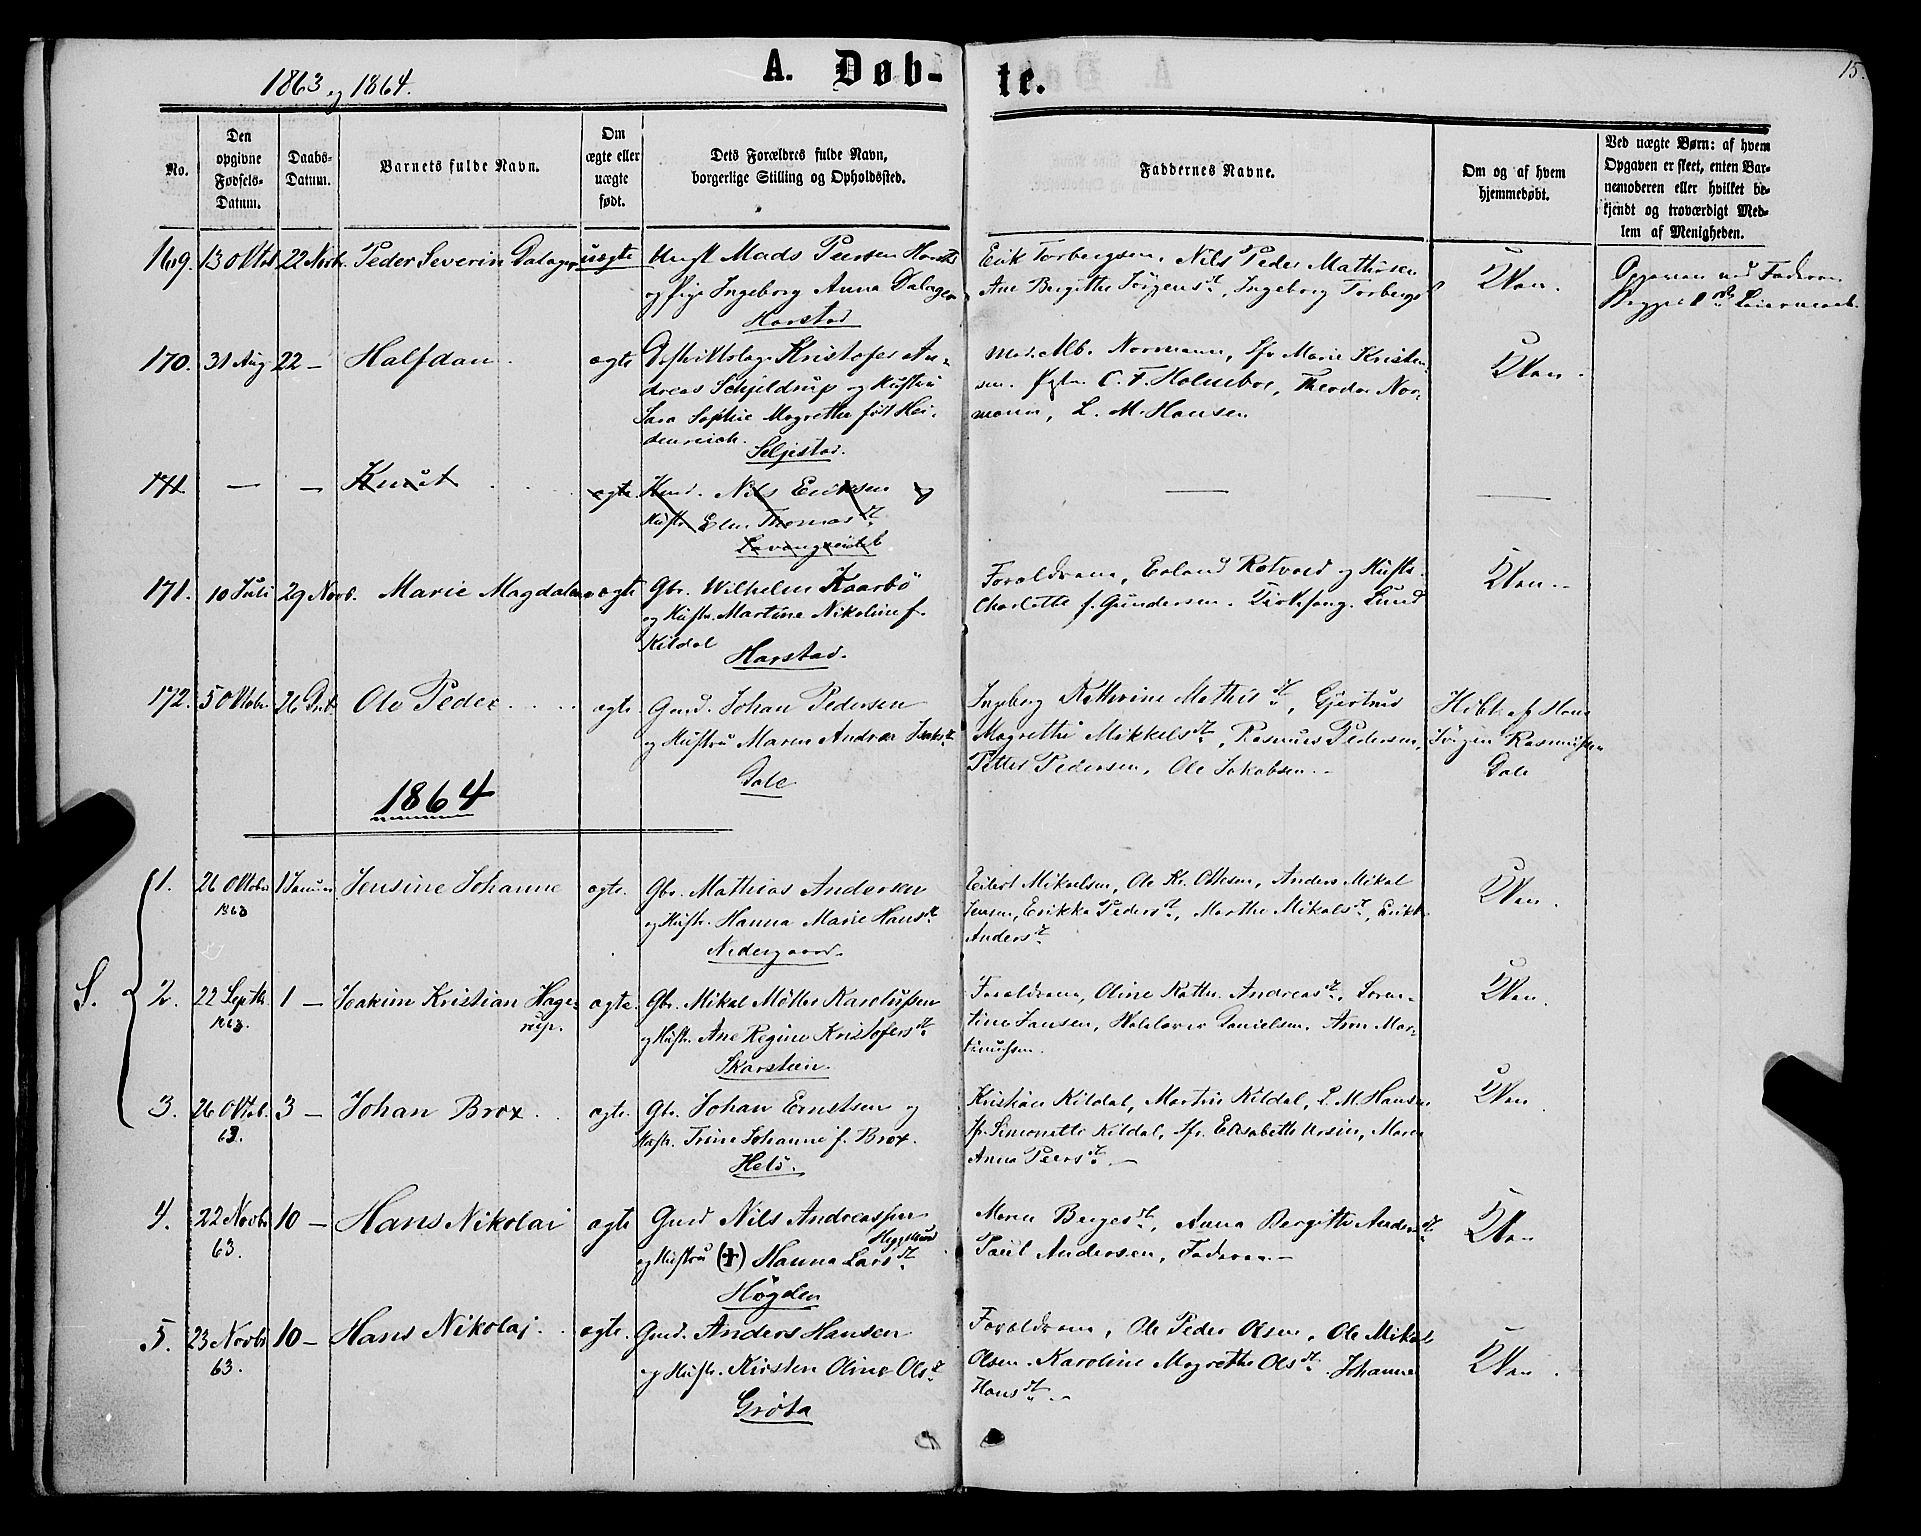 1863 og 1864.
A. Døb-
te.
15.
No.
Den
opgivne
Fødsels-
Datum.
Daabs-
Datum.
Barnets fulde Navn.
Om
ægte eller
uægte
født.
Dets Forældres fulde Navn,
borgerlige Stilling og Opholdssted.
Faddernes Navne.
Om og af hvem
hjemmedøbt.
Ved uægte Børn: af hvem
Opgaven er skeet, enten Bar-
nemoderen eller hvilket be-
kjendt og troværdigt Med-
lem af Menigheden.
169. 13 Oktob 22 Novb. Peder Severin Dalager uægte
Ungk Mads Peersen Harstad
og Pige Ingeborg Anna Dalager
Harstad
Erik Torbergsen, Nils Peder Mathisen
Ane Bergithe Jörgensdt, Ingeborg Torbergsd
Nei.
Opgaven ved Faderen
170. 31 Aug 22 — Halfdan ægte
Distriktslæge Kristofer An-
dreas Schjeldrup og Hustru
Sara Sophie Magrethe født Hei-
denreich.
Seljestad.
Mad. Alb. Normann, Jfr Marie Kristen-
sen. C. F. Holmboe, Theodor Nor-
mann, L. M. Hansen
171 — — Knut ægte
Nils Eriksen og
Hustr. Elen Thomasdt
171. 10 Juli 29 Novb. Marie Magdalena ægte
Gbr. Wilhelm Kaarbö
og Hustr. Martine Nikoline f.
Kildal
Harstad.
Forældrene, Erland Rotvold og Hustr.
Charlotte f. Gundersen. Kirkesang. Lund
172. 5 Oktobr 26 Ole Peder ægte
Gmd. Johan Pedersen
og Hustru Maren Andrea
Dale
Ingeborg Kathrine Mathisdt, Gjertrud
Magrethe Mikkelsdt, Rasmus Pedersen,
Petter Pedersen, Ole Jakobsen.
Hdbt af Hans
Jörgen Rasmussen
Dale
1864
S.
1. 26 Oktober 1 Januar Jensine Johanne ægte.
1863
Gbr. Mathias Andersen
og Hustr. Hanna Marie Hansdt
Nedergaard.
Eilert Mikalsen, Ole Kr. Ottesen, Anders Mikal
Jensen, Erikka Pedersdt, Marthe Mikalsdt,
Andersdt
2. 22 Septb. 1 — Joakim Kristian Hage-
1863. rup.
ægte.
Gbr. Mikal Möller Karolussen
og Hustr. Ane Regine Kristofersdt
Skarstein.
Forældrene, Oline Kathr. Andreasdt, Soren-
tine Jansen, Danielsen, Aron Mar-
tinussen.
3. 26 Oktob. 3 — Johan Brox. ægte.
63.
Gbr. Johan Ernstsen og
Hustr. Trine Johanne f. Brox.
Kristian Kildal, Martin Kildal, L. M. Hansen
Jfr Simonette Kildal, Jfr. Elisabeth Ursin, Maren
Anna Peersdt.
4. 22 Novbr 10 — Hans Nikolai ægte
63.
Gmd Nils Andreassen
og Hustru (+) Hanna Larsdt
Högden
Maren Bergesdt, Anna Bergitte Andersdt
Paul Andersen, Faderen
5. 23 Novbr 10 — Hans Nikolaj. ægte.
63.
Gmd. Anders Hansen
og Hustr. Kirsten Oline Olsdt
Gröta
Forældrene, Ole Peder Olsen, Ole Mikal
Olsen. Karoline Magrethe Olsdt Johanna
Hansdt.